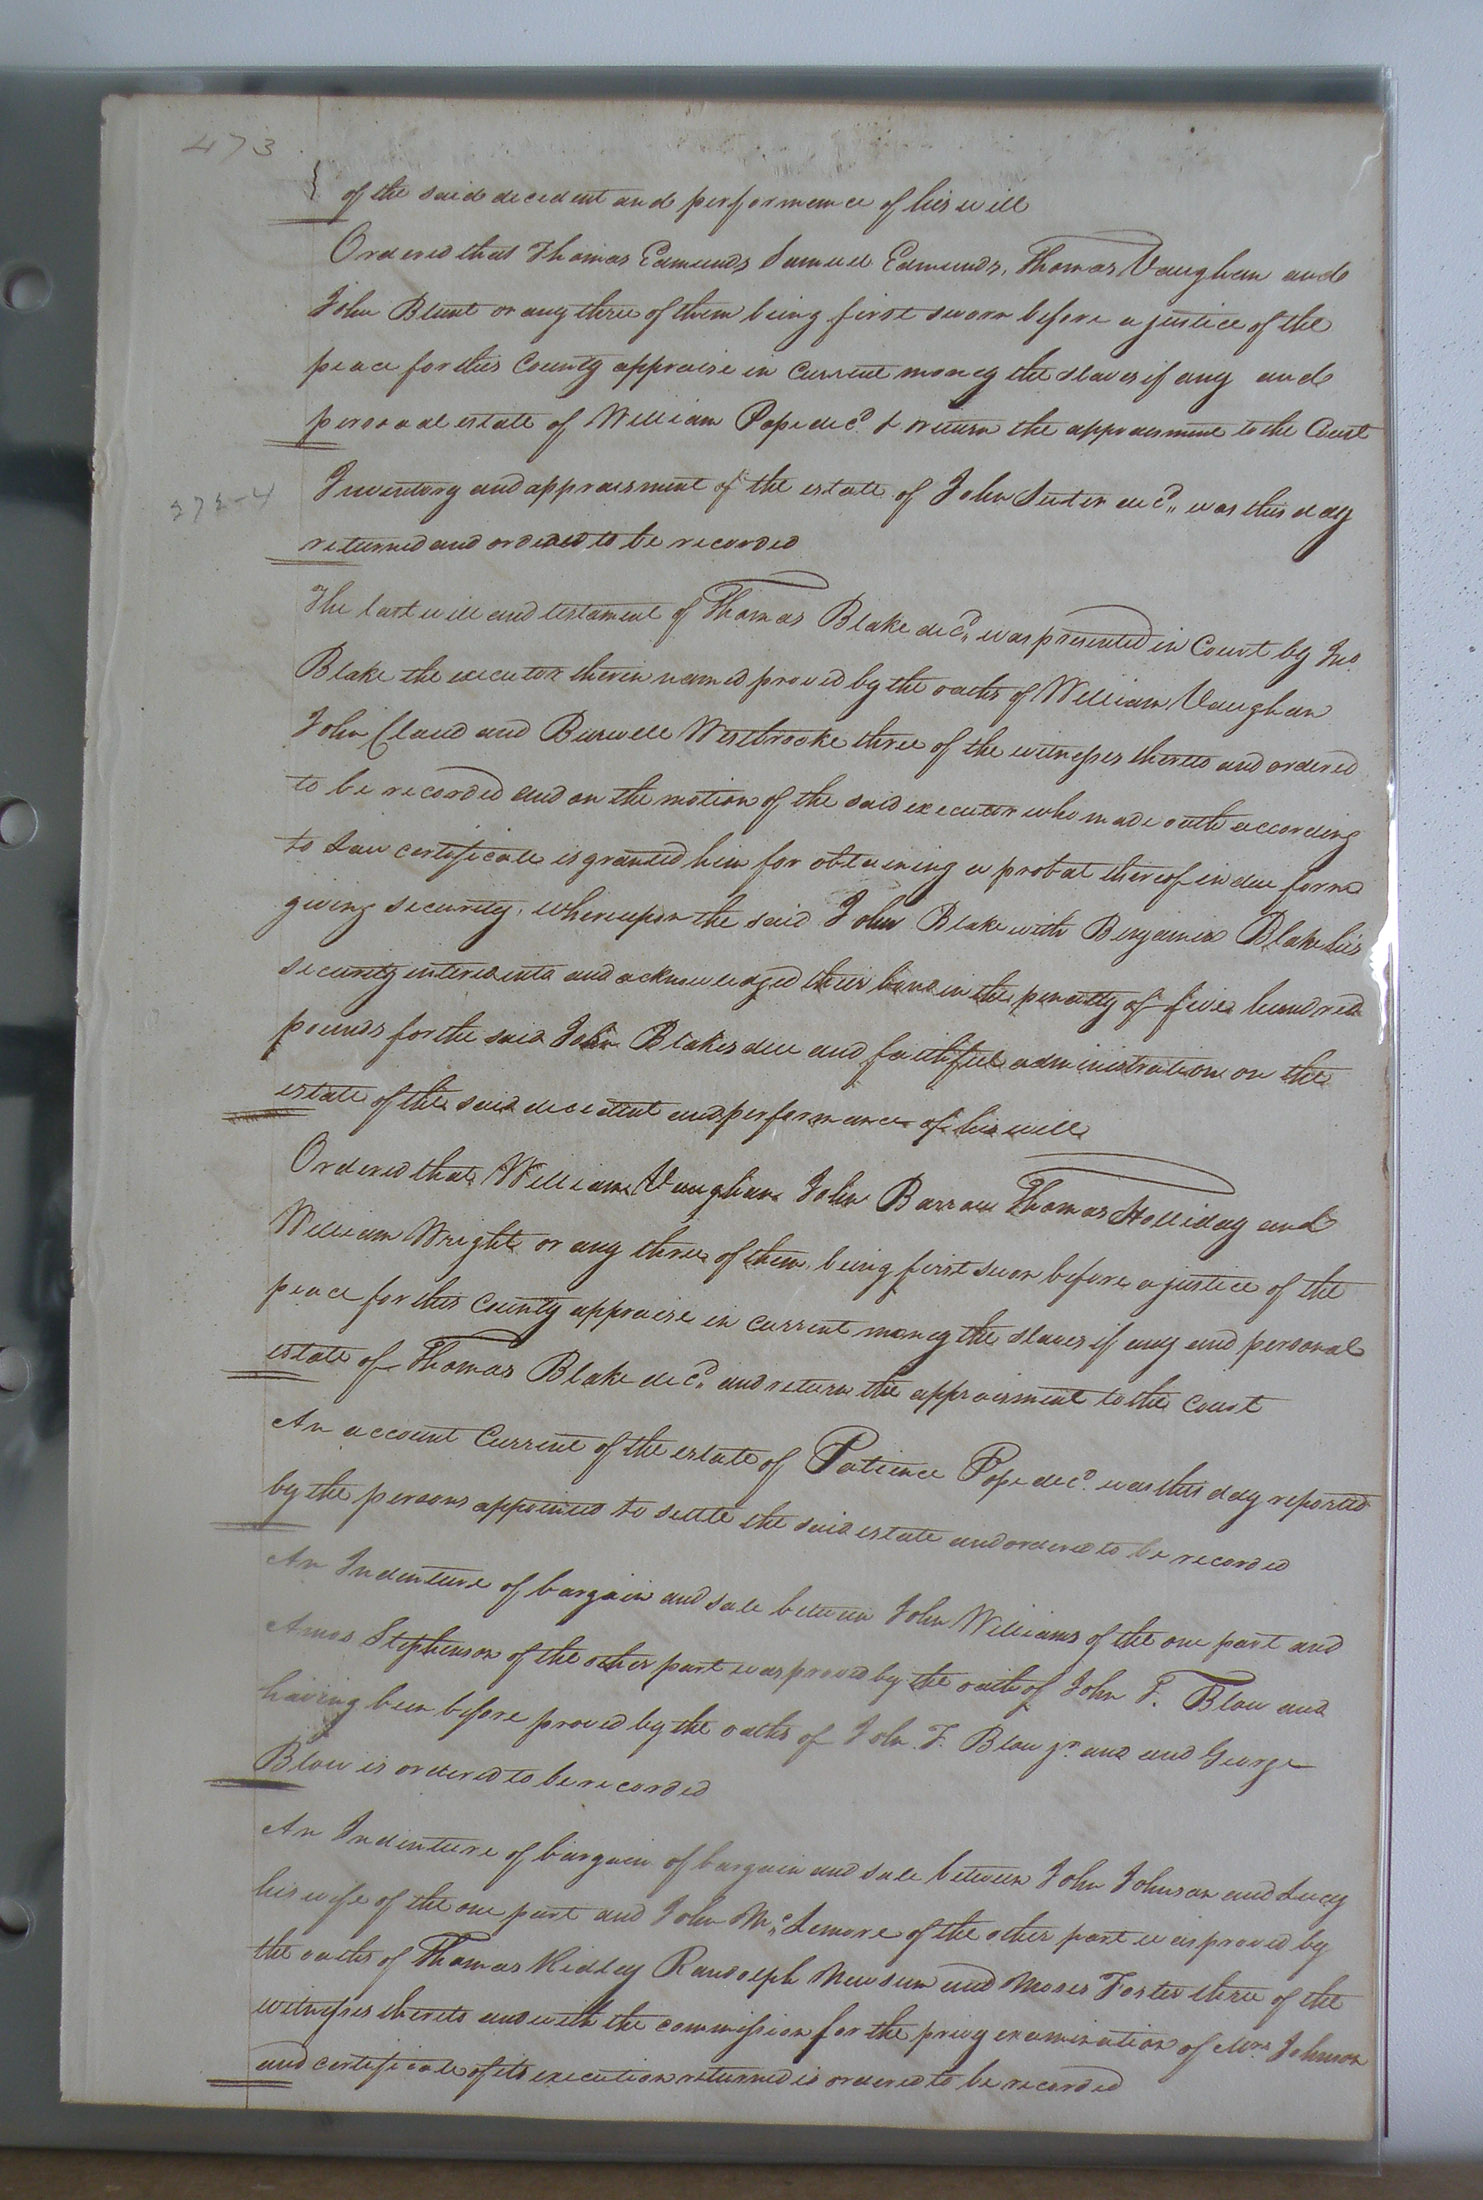 473
of the said decedent and performance of his will
Ordered that Thomas Edmunds Samuel Edmunds, Thomas Vaughan and
John Blunt or any three of them being first sworn before a justice of the
peace for this County appraise in Current money the slaves if any and
personal estate of William Pope decd. & return the appraisment to the Court
Inventory and appraisment of the estate of John Suter decd. was this day
returned and ordered to be recorded
The last will and testament of Thomas Blake decd. was presented in Court by Jno
Blake the executor therein named proved by the oaths of William Vaughan
John Claud and Burwell Westbrooke three of the witnesses thereto and ordered
to be recorded and on the motion of the said executor who made oath according
to Law certificate is granted him for obtaining a probat thereof in due form
giving security, whereupon the said John Blake with Benjamin Blake his
security entered into and acknowledged their bond in the penalty of five hundred
pounds for the said John Blakes due and faithful administration on the
estate of the said decedent and performance of his will
Ordered that William Vaughan John Barrow Thomas Holliday and
William Wright or any three of them being first sworn before a justice of the
peace for this County appraise in current money the slaves if any and personal
estate of Thomas Blake decd. and return the appraisment to the Court
An account Current of the estate of Patience Pope decd. was this day reported
by the persons appointed to settle the said estate and ordered to be recorded
An Indenture of bargain and sale between John Williams of the one part and
Amos Stephenson of the other part was proved by the oath of John T. Blow and
having been before proved by the oaths of John T. Blow jr. and and George
Blow is ordered to be recorded
An Indenture of bargain of bargain and sale between John Johnson and Lucy
his wife of the one part and John Mc.Lemore of the other part was proved by
the oaths of Thomas Ridley Randolph Newsum and Moses Foster three of the
witnesses thereto and with the commission for the privy examination of Mrs. Johnson
and certificate of its execution returned is ordered to be recorded